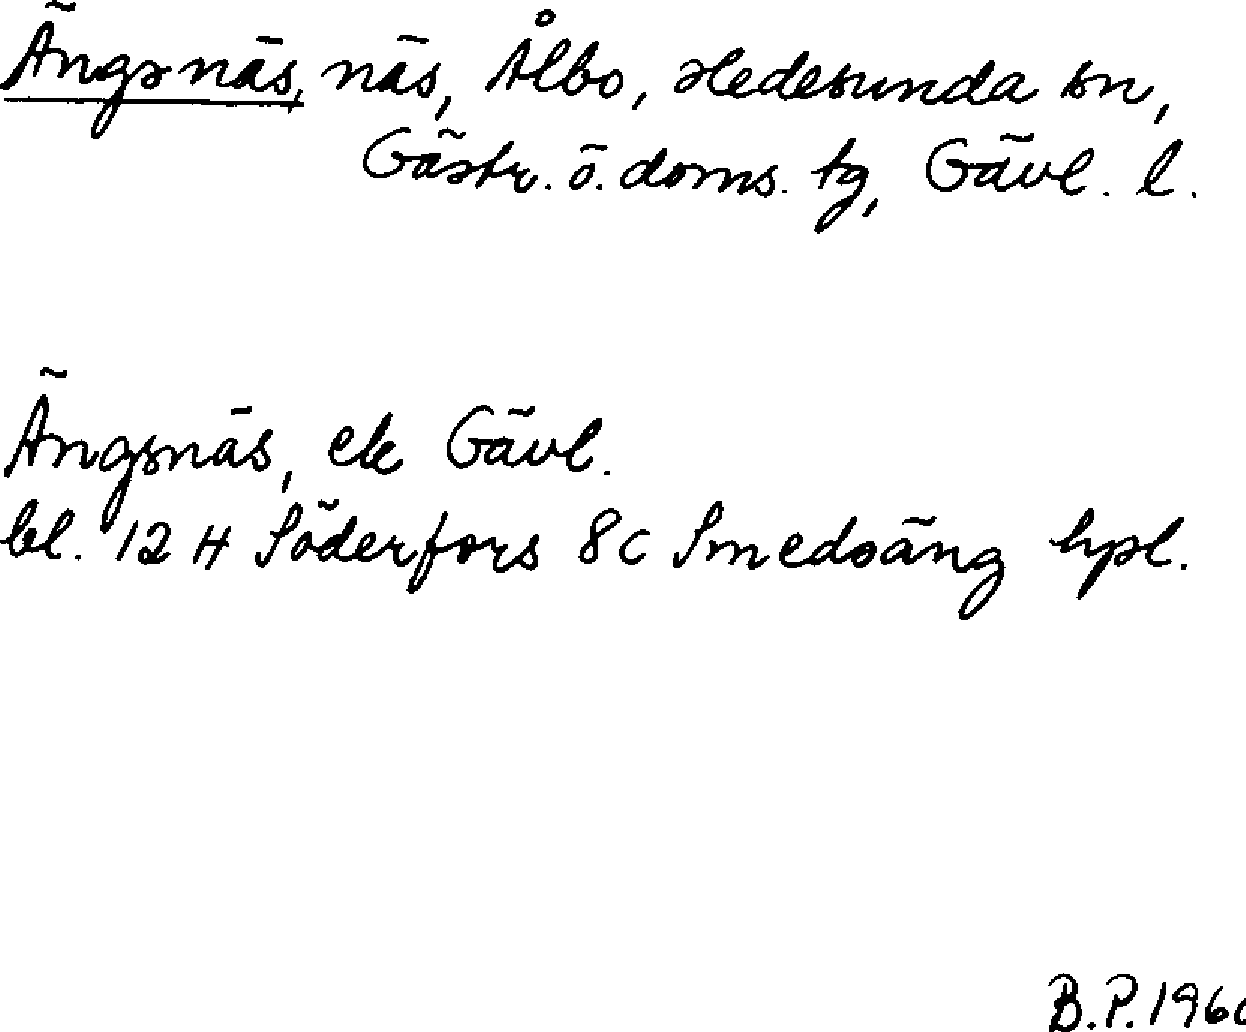 Ängsnäs, näs, Ålbo, Hedesunda sn,
Gästr. ö. doms. tg, Gävl. l.
Ängsnäs, ek Gävl.
bl. 12 H Söderfors 8 c Smedsäng hpl.
B.P. 196